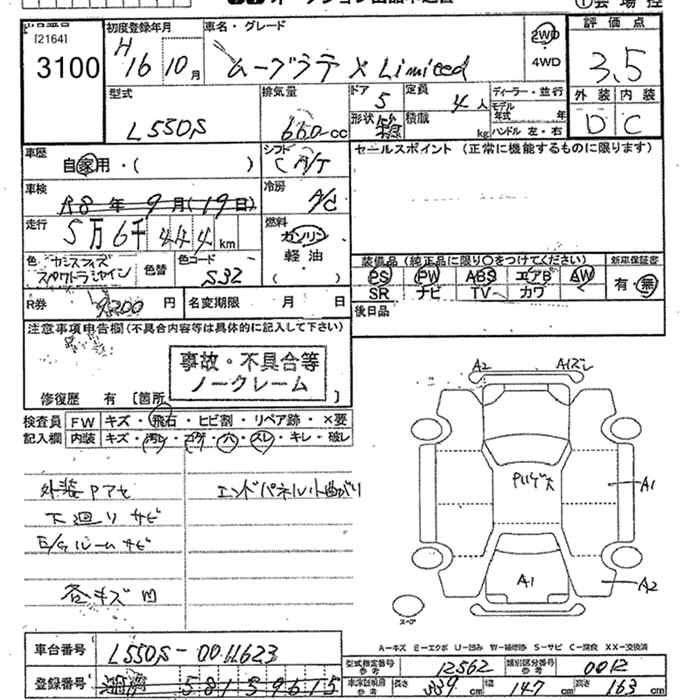 [2164]
3100
初度登録年月
H16 10月
車名・グレード
ムーブラテ X Limited
2WD
4WD
評価点
3.5
外装 内装
D C
型式
L550S
排気量
660cc
ドア 5
定員 4人
形状
積載 kg
ディーラー・並行
モデル年式 年
ハンドル 左・右
車歴
自家用・( )
シフト
車検
R8年9月(19日)
冷房
A/C
走行
5万6千444km
燃料
ガソリン
軽油
( )
色
カシスフィズ
スペクトラシャイン
色替
色コード
S32
セールスポイント (正常に機能するものに限ります)
装備品(純正品に限り○をつけてください)
PS PW ABS エアB AW
SR ナビ TV カワ
新車保証書
有・無
後日品
R券
円
名変期限 月 日
注意事項申告欄(不具合内容等は具体的に記入して下さい)
事故・不具合等
ノークレーム
修復歴 有 [箇所 ]
検査員
記入欄
FW キズ・飛石・ヒビ割・リペア跡・×要
内装 キズ・汚レ・コゲ・穴・スレ・キレ・破レ
外装Pアセ
エンドパネル小曲がり
下廻りサビ
E/Gルームサビ
各キズ凹
A2
A1ズレ
A1
A1
A2
スペア
A-キズ E-エクボ U-凹み W-補修跡 S-サビ C-腐食 XX-交換済
車台番号
L550S-0011623
登録番号
型式指定番号 参考
12562
類別区分番号 参考
0012
長さ 339
幅 147
高さ 163